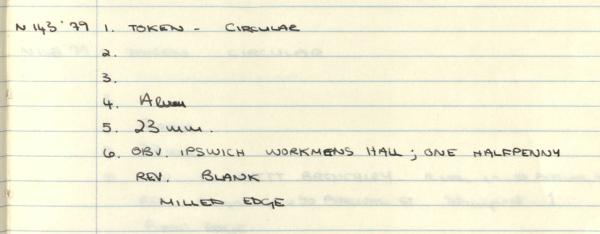 N 143 '79 1. TOKEN - CIRCULAR
2.
3.
4. Alum
5. 23 mm.
6. OBV. IPSWICH WORKMENS HALL; ONE HALFPENNY
REV. BLANK
MILLED EDGE